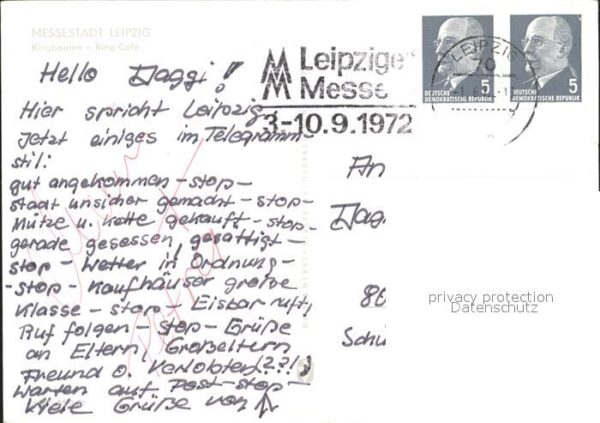 MESSESTADT LEIPZIG
Ringbauten - Ring-Café
Hello Haggi!
Hier spricht Leipzig
Jetzt einiges im Telegramm
stil:
gut angekommen - stop -
stadt unsicher gemacht - stop -
Mütze u. Kette gekauft - stop -
gerade gesessen, gesättigt -
stop - Wetter in Ordnung -
- stop - Kaufhäuser große
Klasse - stop - Eisbar ruft,
Ruf folgen - stop - Grüße
an Eltern, Großeltern
Freund o. Verlobten??!
warten auf Post - stop -
Viele Grüße von
Leipzige
Messe
3-10.9.1972
LEIPZIG
70
5
DEUTSCHE
DEMOKRATISCHE REPUBLIK
5
DEUTSCHE
DEMOKRATISCHE REPUBLIK
An
Hagg
80
Schü
privacy protection
Datenschutz